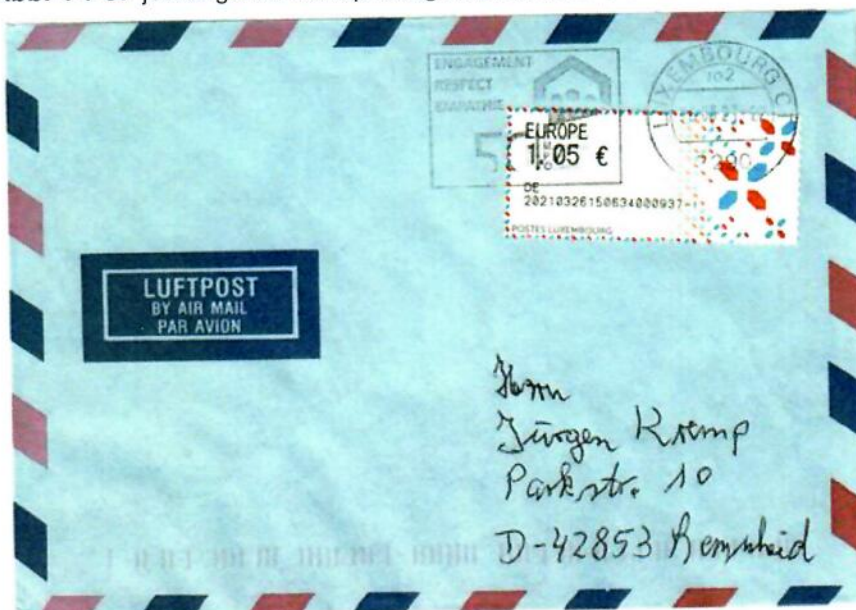 ENGAGEMENT
RESPECT
EMPATHIE
LUXEMBOURG
EUROPE
1,05 €
DE
20210326150634000937-1
POSTES LUXEMBOURG
LUFTPOST
BY AIR MAIL
PAR AVION
Herrn
Jürgen Kremp
Parkstr. 10
D-42853 Remscheid